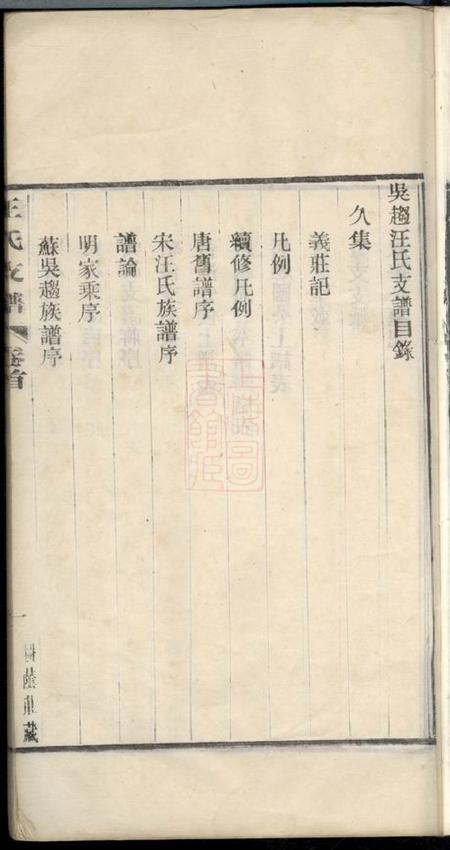 吳趨汪氏支譜目錄
久集
義莊記
凡例
續修凡例
唐舊譜序
宋汪氏族譜序
譜論
明家乘序
蘇吳趨族譜序
汪氏支譜
卷首
一
蔭莊藏